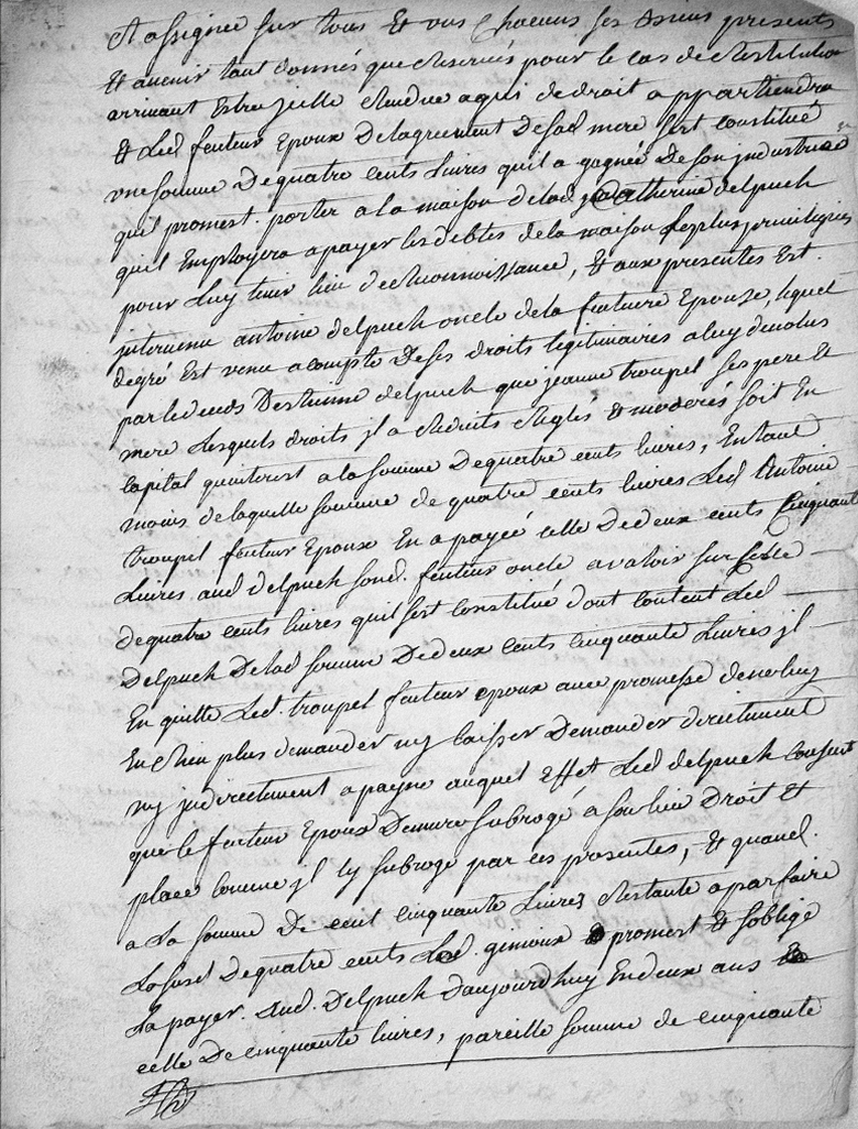 et assignée sur tous Et uns Chacuns ses Biens presents
Et avenir tant donnés que Reservés pour le cas de Restitution
arrivant Estre jcelle Rendue a qui de droit appartiendra
Et Led futeur Epoux De lagreement De sad mere sest constitué
une somme De quatre cents Livres quil a gagnée De son jndustrie
quil promest. porter a la maison de lad Catherine delpuch
quil Employera a payer les debtes de la maison les plus privilegiés
pour Luy tenir lieu de Reconnoissance, Et aux presentes Est
jntervenu antoine delpuch oncle de la futeure Epouse, lequel
degré Est venu a compte De ses droits legitimaires a luy devolus
par le deces D'estienne delpuch que jeanne troupel ses pere Et
mere Lesquels droits jl a Reduits Reglés & moderés soit En
Capital qu'interest a la somme De quatre cents livres, En tant
moins de laquelle somme de quatre cents livres Led Antoine
troupel futeur Epoux En a payée celle De deux cents Cinquante
Livres aud delpuch sond. futeur oncle a valoir sur celle
de quatre cents livres quil sest constitué dont content Led
Delpuch De lad somme De deux cents cinquante Livres jl
En quitte Led. troupel futeur epoux avec promesse de ne luy
En Rien plus demander ny laisser Demander directement
ny jndirectement a payne auquel Effet Led delpuch consent
que le futeur Epoux Demure subrogé a son lieu Droit Et
place comme jl ly subroge par ces presentes, Et quand.
a La somme De cent cinquante Livres Restante a parfaire
La susd De quatre cents Led. promest Et soblige
La payer. Aud. Delpuch D'aujourdhuy En deux ans
celle De cinquante livres, pareille somme de cinquante